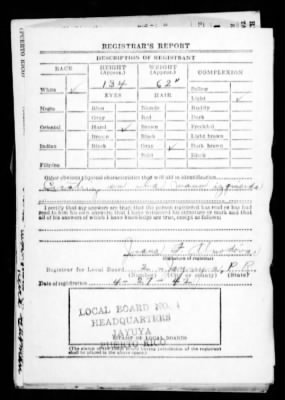 (PUERTO RICO)
REGISTRAR'S REPORT
DESCRIPTION OF REGISTRANT
RACE HEIGHT (Approx.) WEIGHT (Approx.) COMPLEXION
134 62"
White ✓ EYES HAIR Sallow
Light ✓
Negro Blue Blonde Ruddy
Gray Red Dark
Oriental Hazel ✓ Brown Freckled
Brown Black Light brown
Indian Black Gray ✓ Dark brown
Bald Black
Filipino
Other obvious physical characteristics that will aid in identification
I certify that my answers are true; that the person registered has read or has had
read to him his own answers; that I have witnessed his signature or mark and that
all of his answers of which I have knowledge are true, except as follows:
(Signature of registrar)
Registrar for Local Board 2 Jayuya, P.R.
(Number) (City or county) (State)
Date of registration 4-27-42
LOCAL BOARD NO. 1
HEADQUARTERS
JAYUYA
STAMP OF LOCAL BOARD
PUERTO RICO
(The stamp of the Local Board having jurisdiction of the registrant
shall be placed in the above space.)